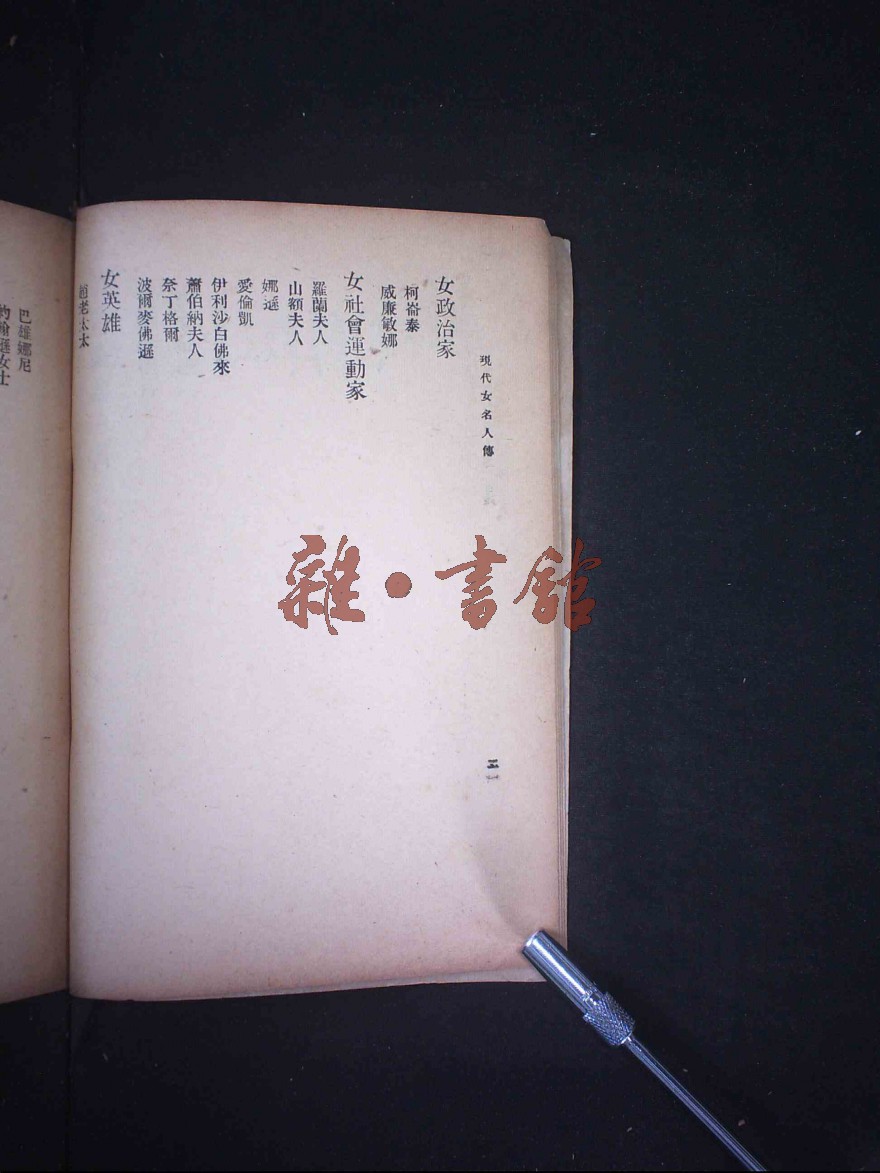 現代女名人傳
二
女政治家
柯崙泰
威廉敏娜
女社會運動家
羅蘭夫人
山額夫人
娜遜
愛倫凱
伊利沙白佛來
蕭伯納夫人
奈丁格爾
波爾麥佛遜
女英雄
趙老太太
巴雄娜尼
約翰遜女士
雜·書館